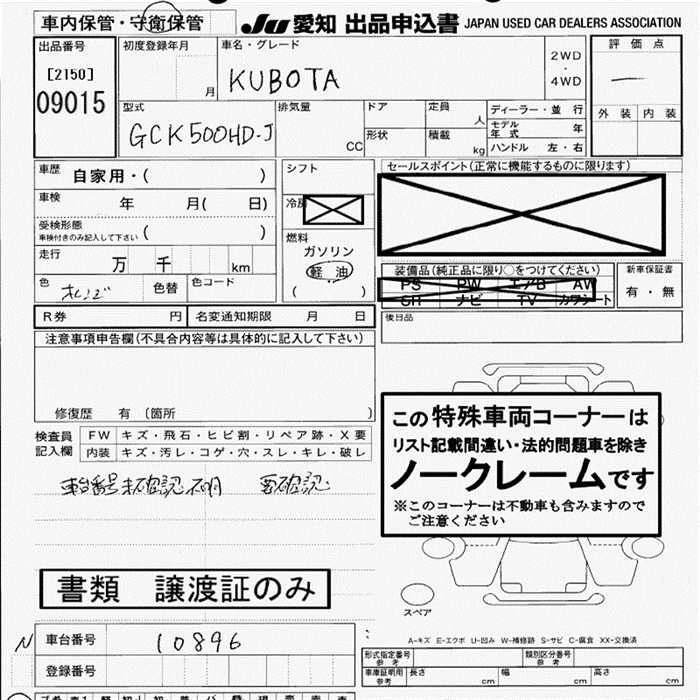 車内保管・守衛保管
JU 愛知 出品申込書 JAPAN USED CAR DEALERS ASSOCIATION
出品番号
[2150]
09015
初度登録年月
月
車名・グレード
KUBOTA
2WD
・
4WD
評価点
外装 内装
型式
GCK500HD-J
排気量
CC
ドア
形状
定員
人
積載
kg
ディーラー・並行
モデル年式 年
ハンドル 左・右
車歴 自家用・( )
車検 年 月( 日)
受検形態
車検付きのみ記入して下さい ( )
走行 万 千 km
色 オレンジ 色替 色コード
シフト
冷房
燃料
ガソリン
軽油
( )
セールスポイント(正常に機能するものに限ります)
装備品(純正品に限り○をつけてください)
PS PW エアB AW
SR ナビ TV カワシート
新車保証書
有・無
後日品
R券 円 名変通知期限 月 日
注意事項申告欄(不具合内容等は具体的に記入して下さい)
修復歴 有 〔箇所 〕
検査員
記入欄
FW キズ・飛石・ヒビ割・リペア跡・X要
内装 キズ・汚レ・コゲ・穴・スレ・キレ・破レ
車台番号未確認 不明 要確認
この特殊車両コーナーは
リスト記載間違い・法的問題車を除き
ノークレームです
※このコーナーは不動車も含みますので
ご注意ください
書類 譲渡証のみ
スペア
N 車台番号 10896
登録番号
A-キズ E-エクボ U-凹み W-補修跡 S-サビ C-腐食 XX-交換済
形式指定番号
参考
類別区分番号
参考
車庫証明用
参考
長さ cm 幅 cm 高さ cm